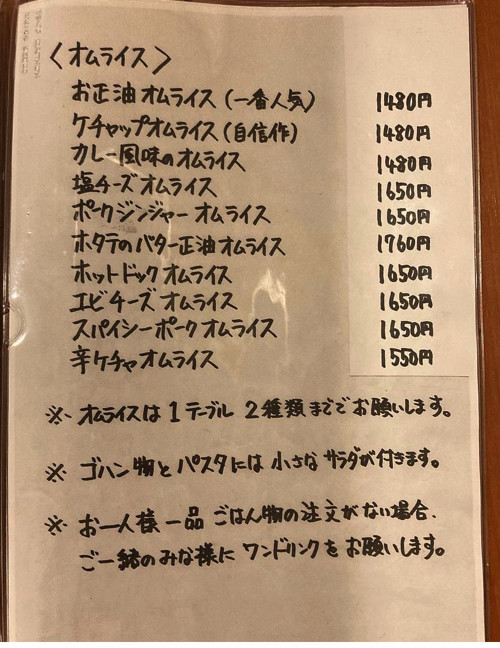 〈オムライス〉
お正油オムライス(一番人気) 1480円
ケチャップオムライス(自信作) 1480円
カレー風味のオムライス 1480円
塩チーズオムライス 1650円
ポークジンジャーオムライス 1650円
ホタテのバター正油オムライス 1760円
ホットドックオムライス 1650円
エビチーズオムライス 1650円
スパイシーポークオムライス 1650円
辛ケチャオムライス 1550円
※ オムライスは1テーブル 2種類まででお願いします。
※ ゴハン物とパスタには小さなサラダが付きます。
※ お一人様一品ごはん物の注文がない場合、
ご一緒のみな様にワンドリンクをお願いします。